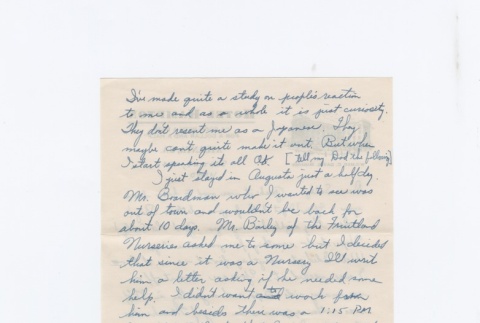 I've made quite a study on people's reaction
to me and as a whole it is just curiosity.
They don't resent me as a Japanese. They
maybe can't quite make it out. But when
I start speaking it's all OK. [tell my Dad the following]
I just stayed in Augusta just a half day.
Mr. Boardman who I wanted to see was
out of town and wouldn't be back for
about 10 days. Mr. Bailey of the Fruitland
Nurseries asked me to come but I decided
that since it was a Nursery I'll write
him a letter asking if he needed some
help. I didn't want to work for
him and besides there was a 1:15 PM